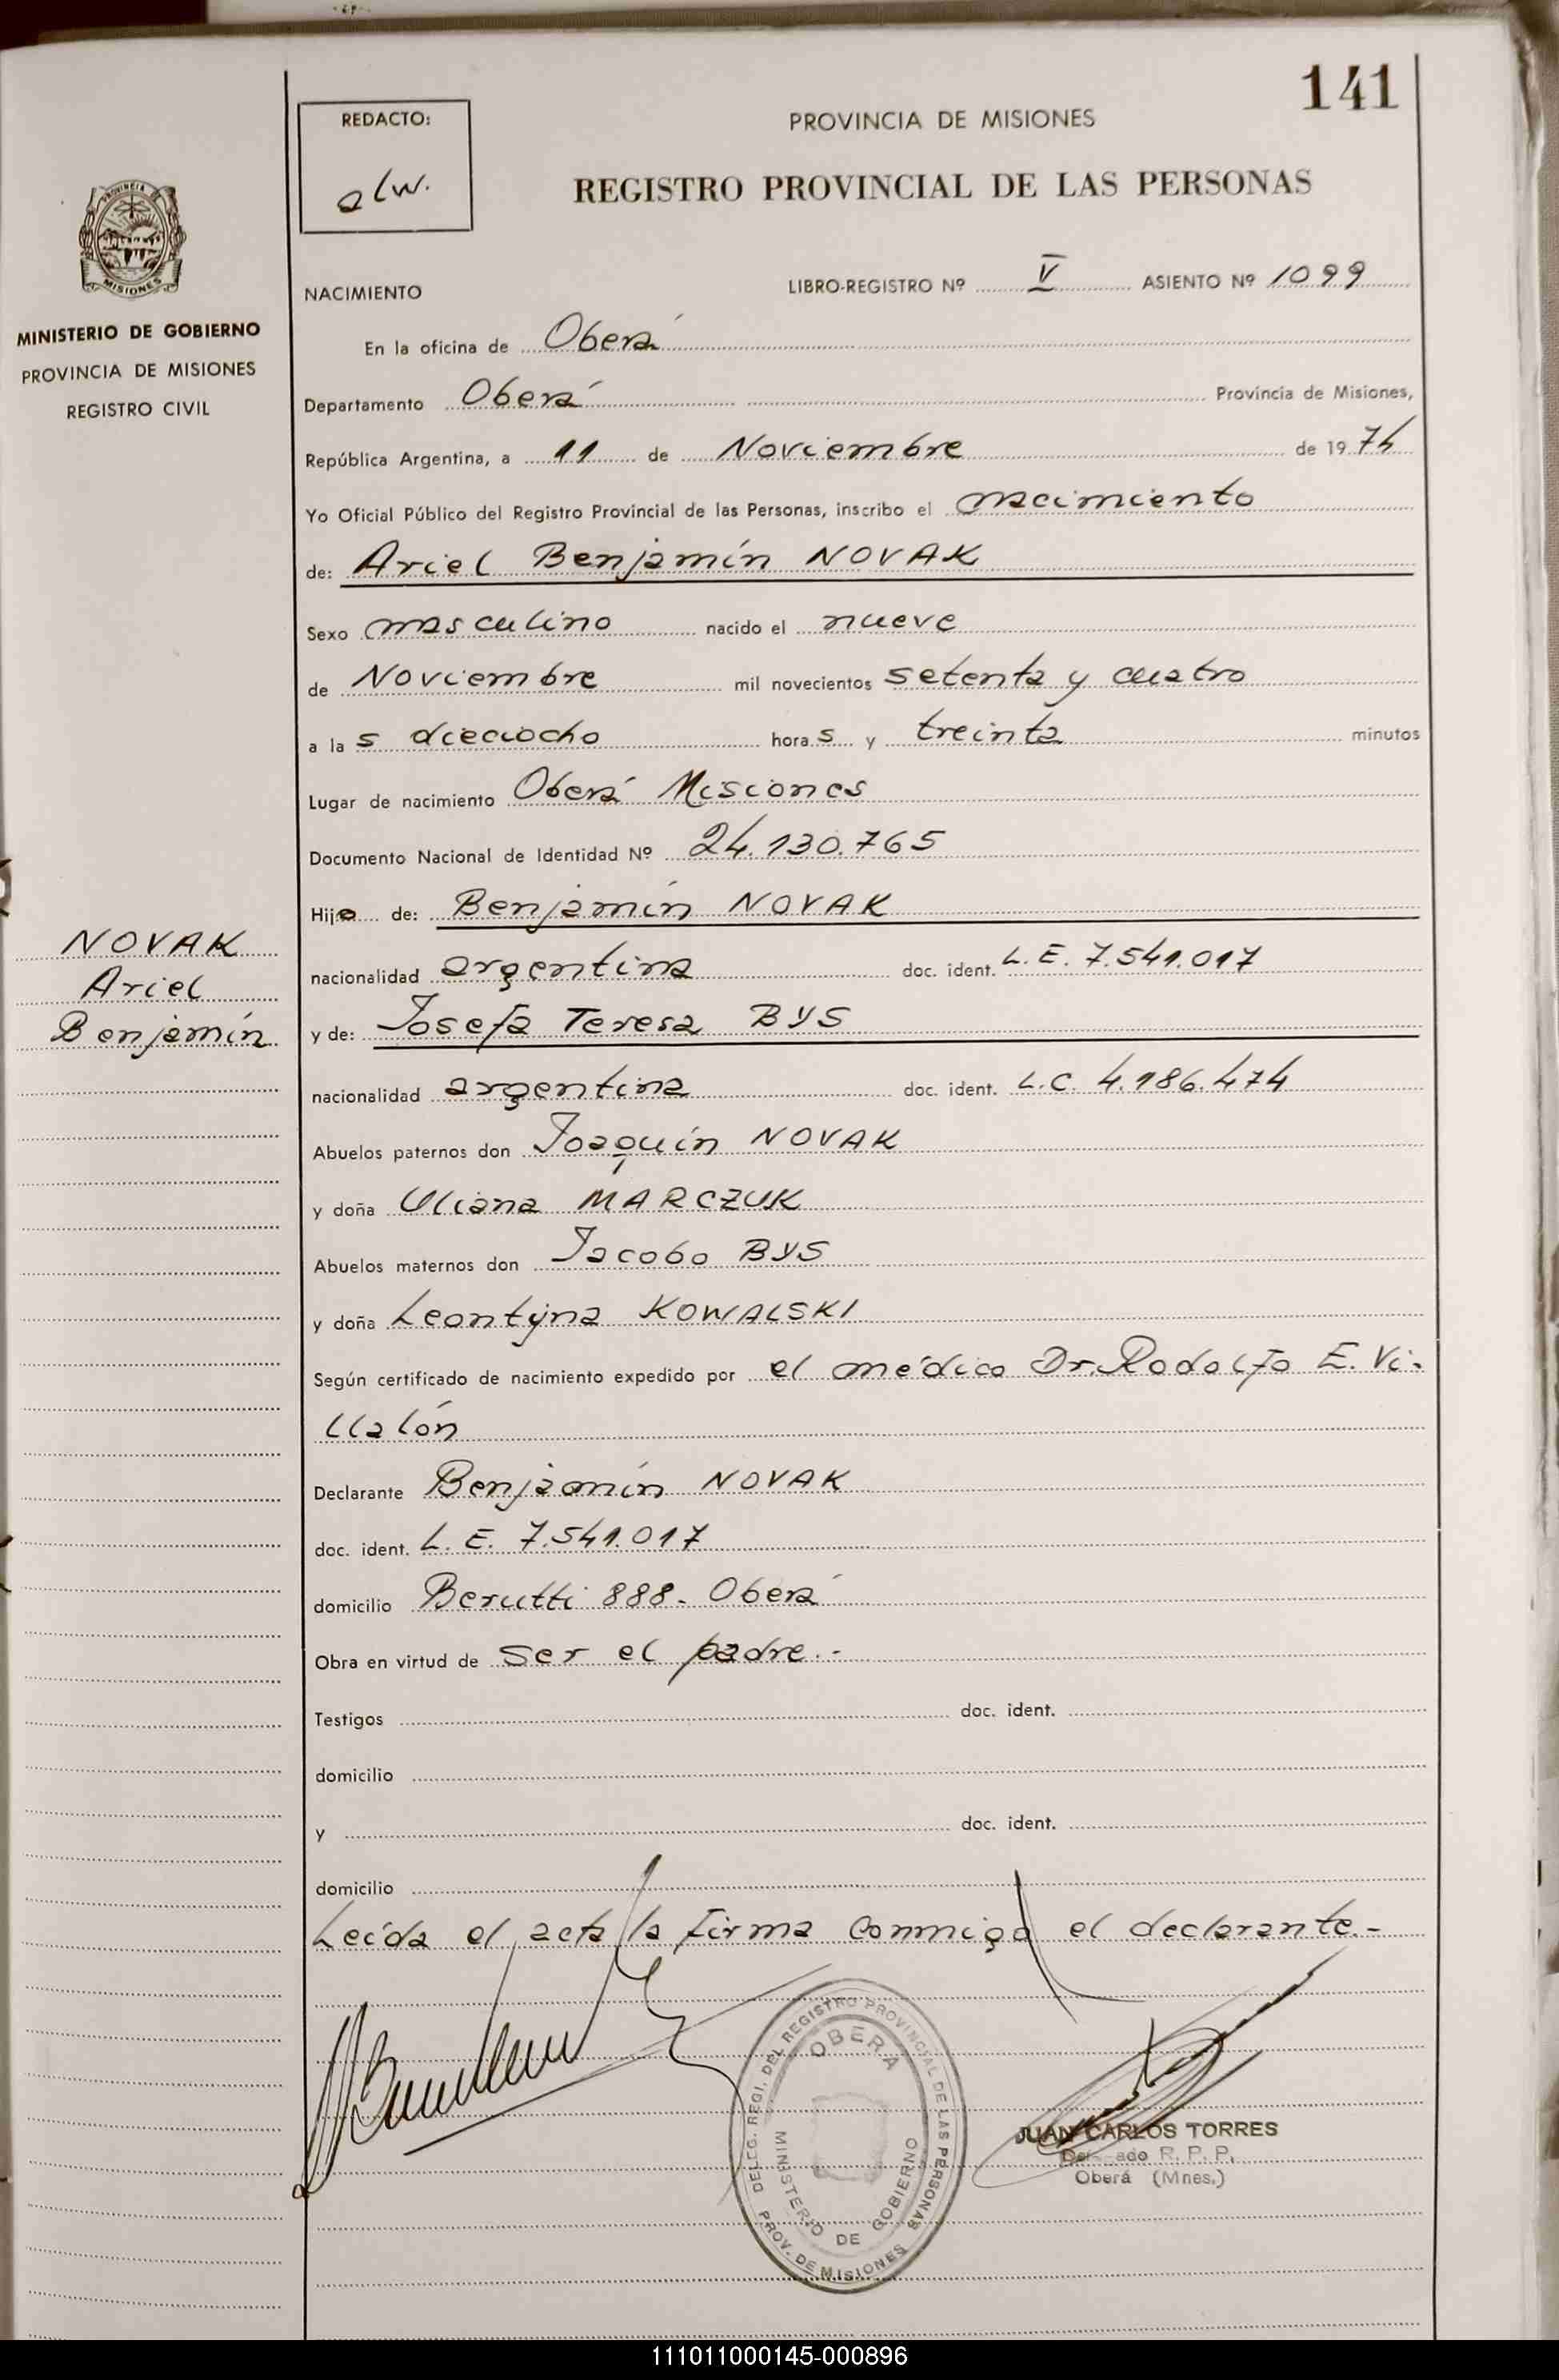 141
REDACTO:
alw.
PROVINCIA DE MISIONES
REGISTRO PROVINCIAL DE LAS PERSONAS
PROVINCIA
MISIONES
MINISTERIO DE GOBIERNO
PROVINCIA DE MISIONES
REGISTRO CIVIL
NACIMIENTO
LIBRO-REGISTRO Nº V ASIENTO Nº 1099
En la oficina de Oberá
Departamento Oberá Provincia de Misiones,
República Argentina, a 11 de Noviembre de 1974
Yo Oficial Público del Registro Provincial de las Personas, inscribo el nacimiento
de: Ariel Benjamín NOVAK
Sexo masculino nacido el nueve
de Noviembre mil novecientos setenta y cuatro
a las dieciocho horas y treinta minutos
Lugar de nacimiento Oberá Misiones
Documento Nacional de Identidad Nº 24.130.765
Hijo de: Benjamín NOVAK
nacionalidad argentina doc. ident. L.E. 7.541.017
y de: Josefa Teresa BYS
nacionalidad argentina doc. ident. L.C. 4.186.474
Abuelos paternos don Joaquín NOVAK
y doña Uliana MARCZUK
Abuelos maternos don Jacobo BYS
y doña Leontyna KOWALSKI
Según certificado de nacimiento expedido por el médico Dr. Rodolfo E. Vi-
llalón
Declarante Benjamín NOVAK
doc. ident. L. E. 7.541.017
domicilio Berutti 888- Oberá
Obra en virtud de ser el padre.-
Testigos doc. ident.
domicilio
y doc. ident.
domicilio
Leída el acta la firma conmigo el declarante.-
NOVAK
Ariel
Benjamín
DELEG. REGI. DEL REGISTRO PROVINCIAL DE LAS PERSONAS
OBERA
MINISTERIO DE GOBIERNO
PROV. DE MISIONES
JUAN CARLOS TORRES
R. P. P.
Oberá (Mnes.)
111011000145-000896